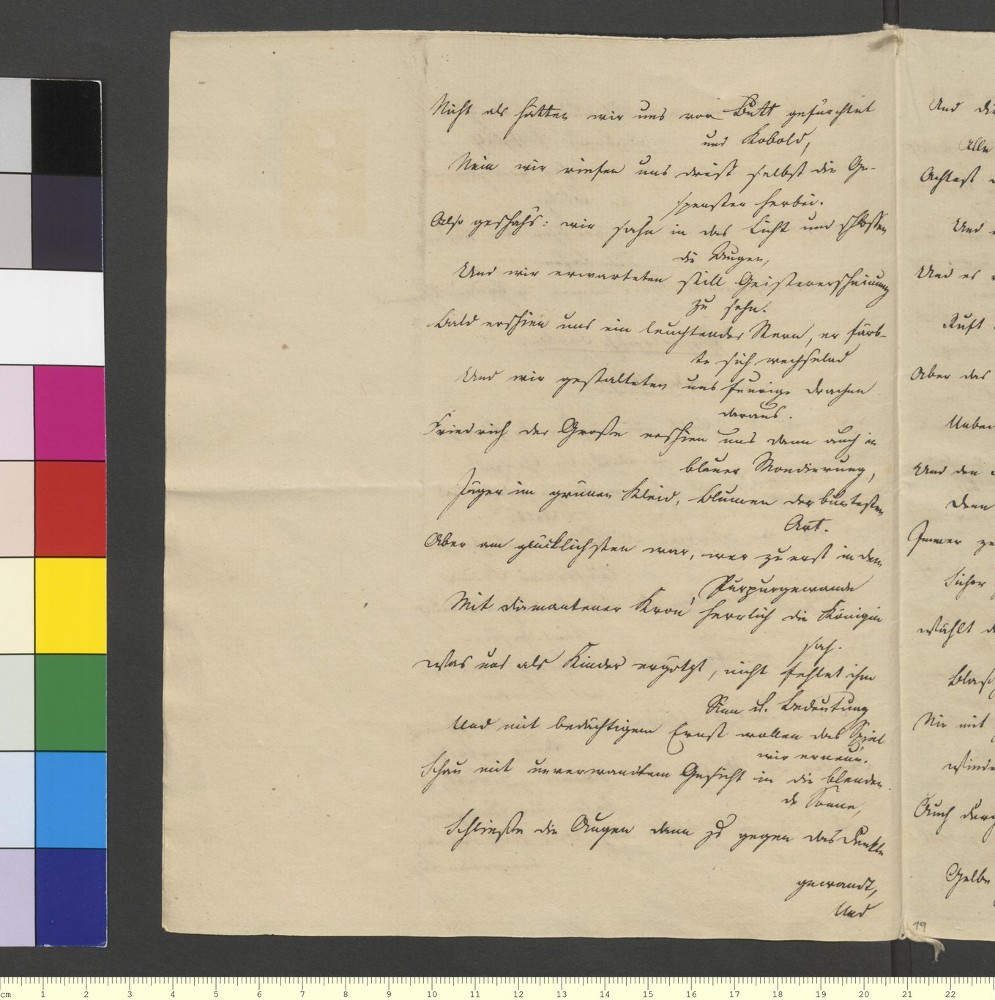 Nicht als hätten wir uns vor Butt gefürchtet
und Kobold,
Nein wir riefen uns dreist selbst die Ge-
spenster herbei.
Also geschah's: wir sahn in das Licht und schlossen
die Augen,
Und wir erwarteten still Geistererscheinung
zu sehn.
Bald erschien uns ein leuchtender Stern, er färb-
te sich wechselnd
Und wir gestalteten uns feurige Drachen
daraus.
Friedrich der Große erschien uns dann auch in
blauer Mondierung,
Jäger im grünen Kleid, Blumen der buntesten
Art.
Aber am glücklichsten war, wer zu erst in dem
Purpurgewande
Mit diamantener Kron' herrlich die Königin
sah.
Was uns als Kinder ergötzt, nicht fehlet ihm
Sinn u. Bedeutung
Und mit bedächtigem Ernst wollen das Spiel
wir erneun.
Schau mit unverwandtem Gesicht in die blenden-
de Sonne,
Schließe die Augen dann zu gegen das Dunkle
gewandt,
Und
Und
Alle
Achtest
Und
Und es
Ruft
Aber das
Und den
Denn
Immer
Sicher
Wählt
Nie mit
Auch
Gelbe
19
cm 1 2 3 4 5 6 7 8 9 10 11 12 13 14 15 16 17 18 19 20 21 22